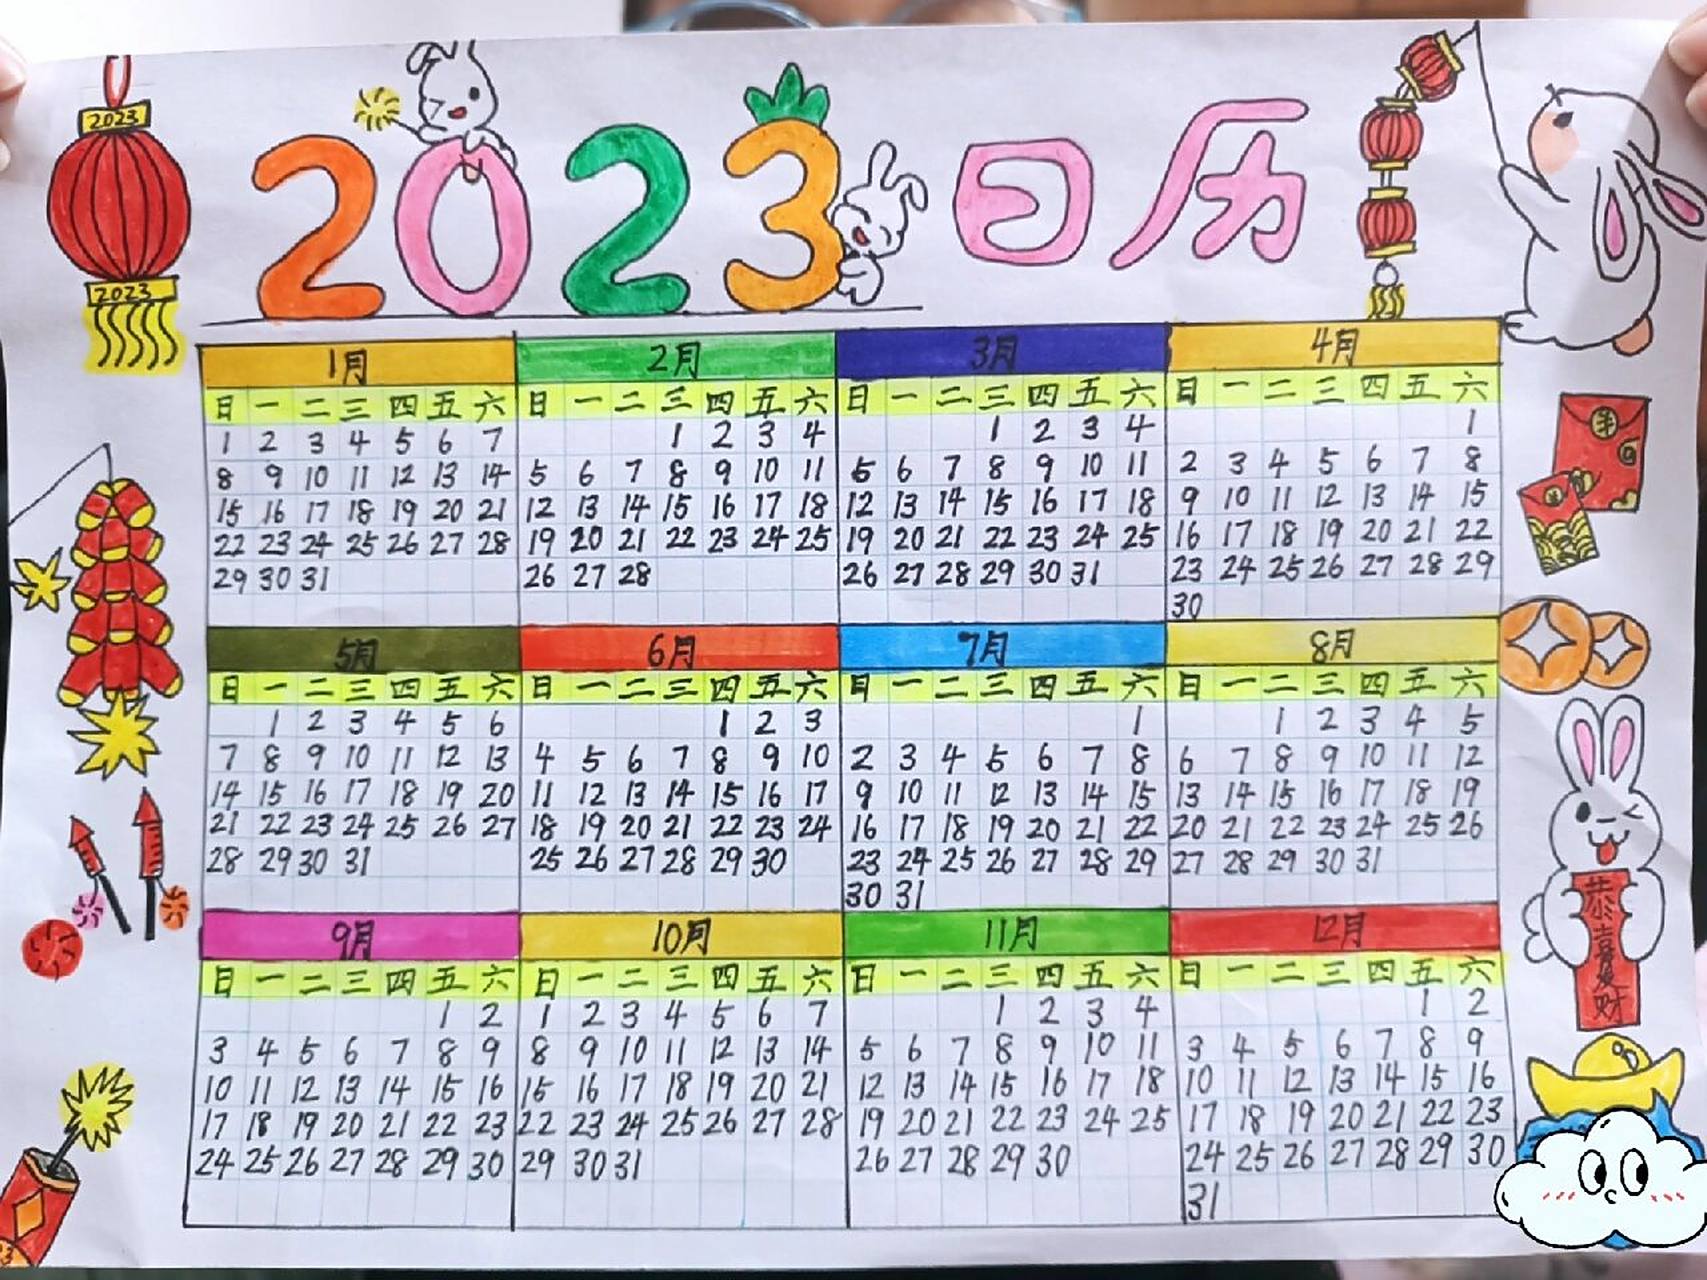 2023 日历
2023
2023
1月 2月 3月 4月
日 一 二 三 四 五 六 日 一 二 三 四 五 六 日 一 二 三 四 五 六 日 一 二 三 四 五 六
1 2 3 4 5 6 7 1 2 3 4 1 2 3 4 1
8 9 10 11 12 13 14 5 6 7 8 9 10 11 5 6 7 8 9 10 11 2 3 4 5 6 7 8
15 16 17 18 19 20 21 12 13 14 15 16 17 18 12 13 14 15 16 17 18 9 10 11 12 13 14 15
22 23 24 25 26 27 28 19 20 21 22 23 24 25 19 20 21 22 23 24 25 16 17 18 19 20 21 22
29 30 31 26 27 28 26 27 28 29 30 31 23 24 25 26 27 28 29
30
5月 6月 7月 8月
日 一 二 三 四 五 六 日 一 二 三 四 五 六 日 一 二 三 四 五 六 日 一 二 三 四 五 六
1 2 3 4 5 6 1 2 3 1 1 2 3 4 5
7 8 9 10 11 12 13 4 5 6 7 8 9 10 2 3 4 5 6 7 8 6 7 8 9 10 11 12
14 15 16 17 18 19 20 11 12 13 14 15 16 17 9 10 11 12 13 14 15 13 14 15 16 17 18 19
21 22 23 24 25 26 27 18 19 20 21 22 23 24 16 17 18 19 20 21 22 20 21 22 23 24 25 26
28 29 30 31 25 26 27 28 29 30 23 24 25 26 27 28 29 27 28 29 30 31
30 31
9月 10月 11月 12月
日 一 二 三 四 五 六 日 一 二 三 四 五 六 日 一 二 三 四 五 六 日 一 二 三 四 五 六
1 2 1 2 3 4 5 6 7 1 2 3 4 1 2
3 4 5 6 7 8 9 8 9 10 11 12 13 14 5 6 7 8 9 10 11 3 4 5 6 7 8 9
10 11 12 13 14 15 16 15 16 17 18 19 20 21 12 13 14 15 16 17 18 10 11 12 13 14 15 16
17 18 19 20 21 22 23 22 23 24 25 26 27 28 19 20 21 22 23 24 25 17 18 19 20 21 22 23
24 25 26 27 28 29 30 29 30 31 26 27 28 29 30 24 25 26 27 28 29 30
31
恭喜发财